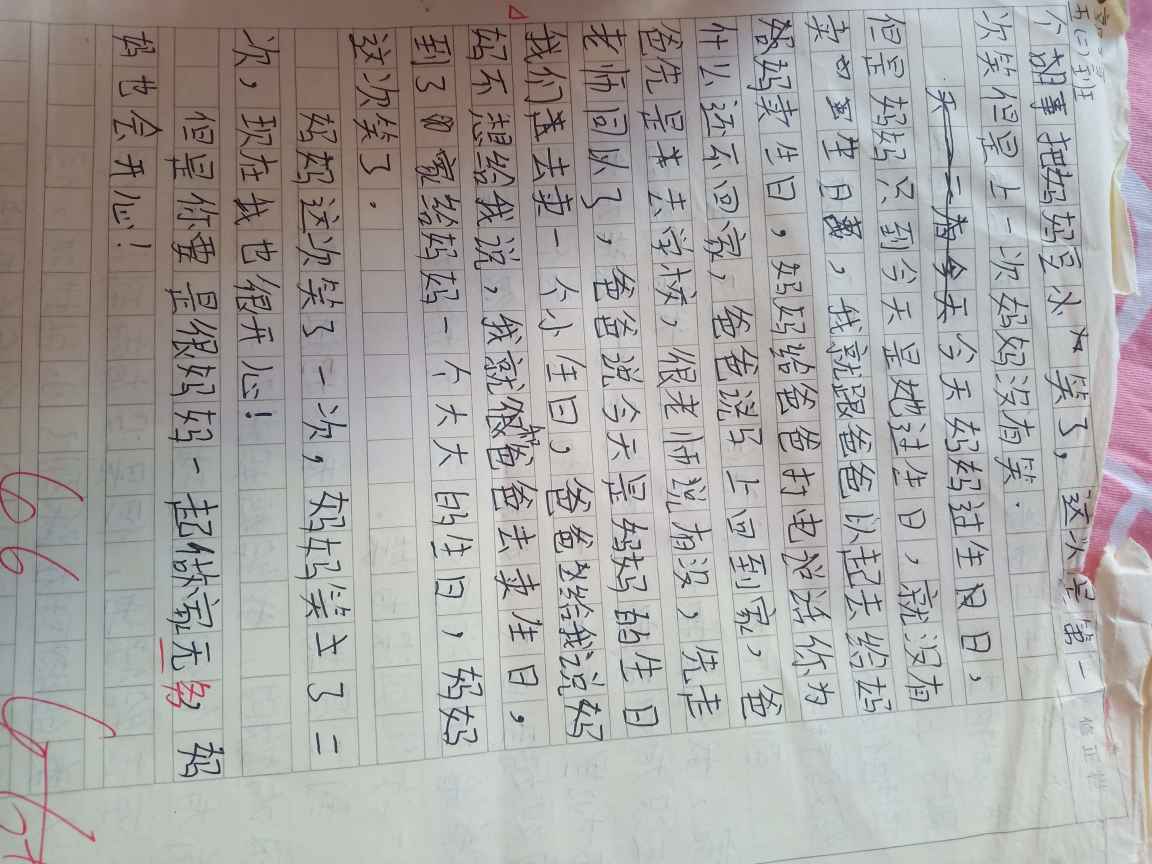 五(二)班
个胡事把妈妈豆小 笑了，这次是第一
次笑但是上一次妈妈没有笑.
今天妈妈过生日，
但是妈妈只到今天是她过生日，就没有
卖 生日 ，我就跟爸爸以起去给妈
妈卖生日，妈妈给爸爸打电 话你为
什么还不回家，爸爸说 上回到家，爸
爸先是 去学校，很老师说有没，先走
老师同以了，爸爸说今天是妈妈的生日
我们 去卖一个小生日，爸爸 给我说妈
妈不想给我说，我就很爸爸去卖生日，
到了 家给妈妈一个大大的生日，妈妈
这次笑了.
妈妈这次笑了一次，妈妈笑 了二
次，现在我也很开心!
但是你要是很妈妈一起做家无务，妈
妈也会开心!
66
修正栏